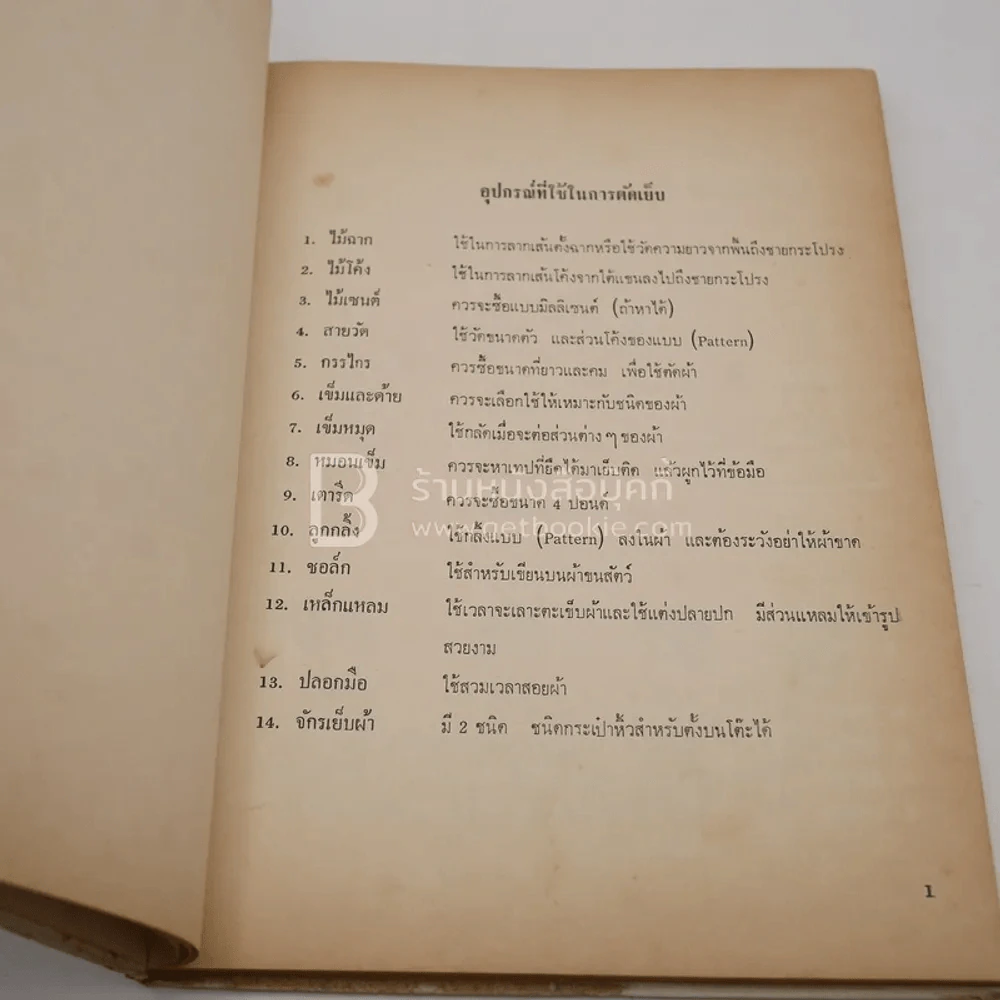 อุปกรณ์ที่ใช้ในการตัดเย็บ
1. ไม้ฉาก ใช้ในการลากเส้นตั้งฉากหรือใช้วัดความยาวจากพื้นถึงชายกระโปรง
2. ไม้โค้ง ใช้ในการลากเส้นโค้งจากใต้แขนลงไปถึงชายกระโปรง
3. ไม้เซนต์ ควรจะซื้อแบบมิลลิเซนต์ (ถ้าหาได้)
4. สายวัด ใช้วัดขนาดตัว และส่วนโค้งของแบบ (Pattern)
5. กรรไกร ควรซื้อขนาดที่ยาวและคม เพื่อใช้ตัดผ้า
6. เข็มและด้าย ควรจะเลือกใช้ให้เหมาะกับชนิดของผ้า
7. เข็มหมุด ใช้กลัดเมื่อจะต่อส่วนต่าง ๆ ของผ้า
8. หมอนเข็ม ควรจะหาเทปที่ยืดได้มาเย็บติด แล้วผูกไว้ที่ข้อมือ
ร้านหนังสือบุคกี้
9. เตารีด ควรจะซื้อขนาด 4 ปอนด์
www.getbookie.com
10. ลูกกลิ้ง ใช้กลิ้งแบบ (Pattern) ลงในผ้า และต้องระวังอย่าให้ผ้าขาด
11. ชอล็ก ใช้สำหรับเขียนบนผ้าขนสัตว์
12. เหล็กแหลม ใช้เวลาจะเลาะตะเข็บผ้าและใช้แต่งปลายปก มีส่วนแหลมให้เข้ารูป
สวยงาม
13. ปลอกมือ ใช้สวมเวลาสอยผ้า
14. จักรเย็บผ้า มี 2 ชนิด ชนิดกระเป๋าหิ้วสำหรับตั้งบนโต๊ะได้
1